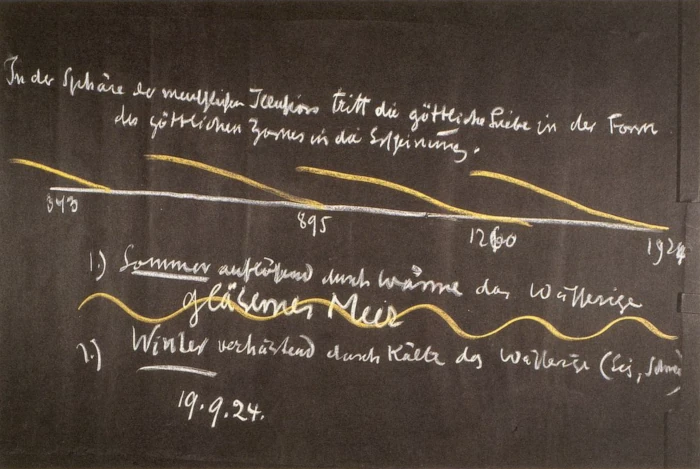 In der Sphäre der menschlichen Illusion tritt die göttliche Liebe in der Form
des göttlichen Zornes in die Erscheinung.
343
895
1260
1924
1.) Sommer auflösend durch Wärme das Wässerige
gläsernes Meer
2.) Winter verhärtend durch Kälte das Wässerige (Eis, Schnee
19.9.24.